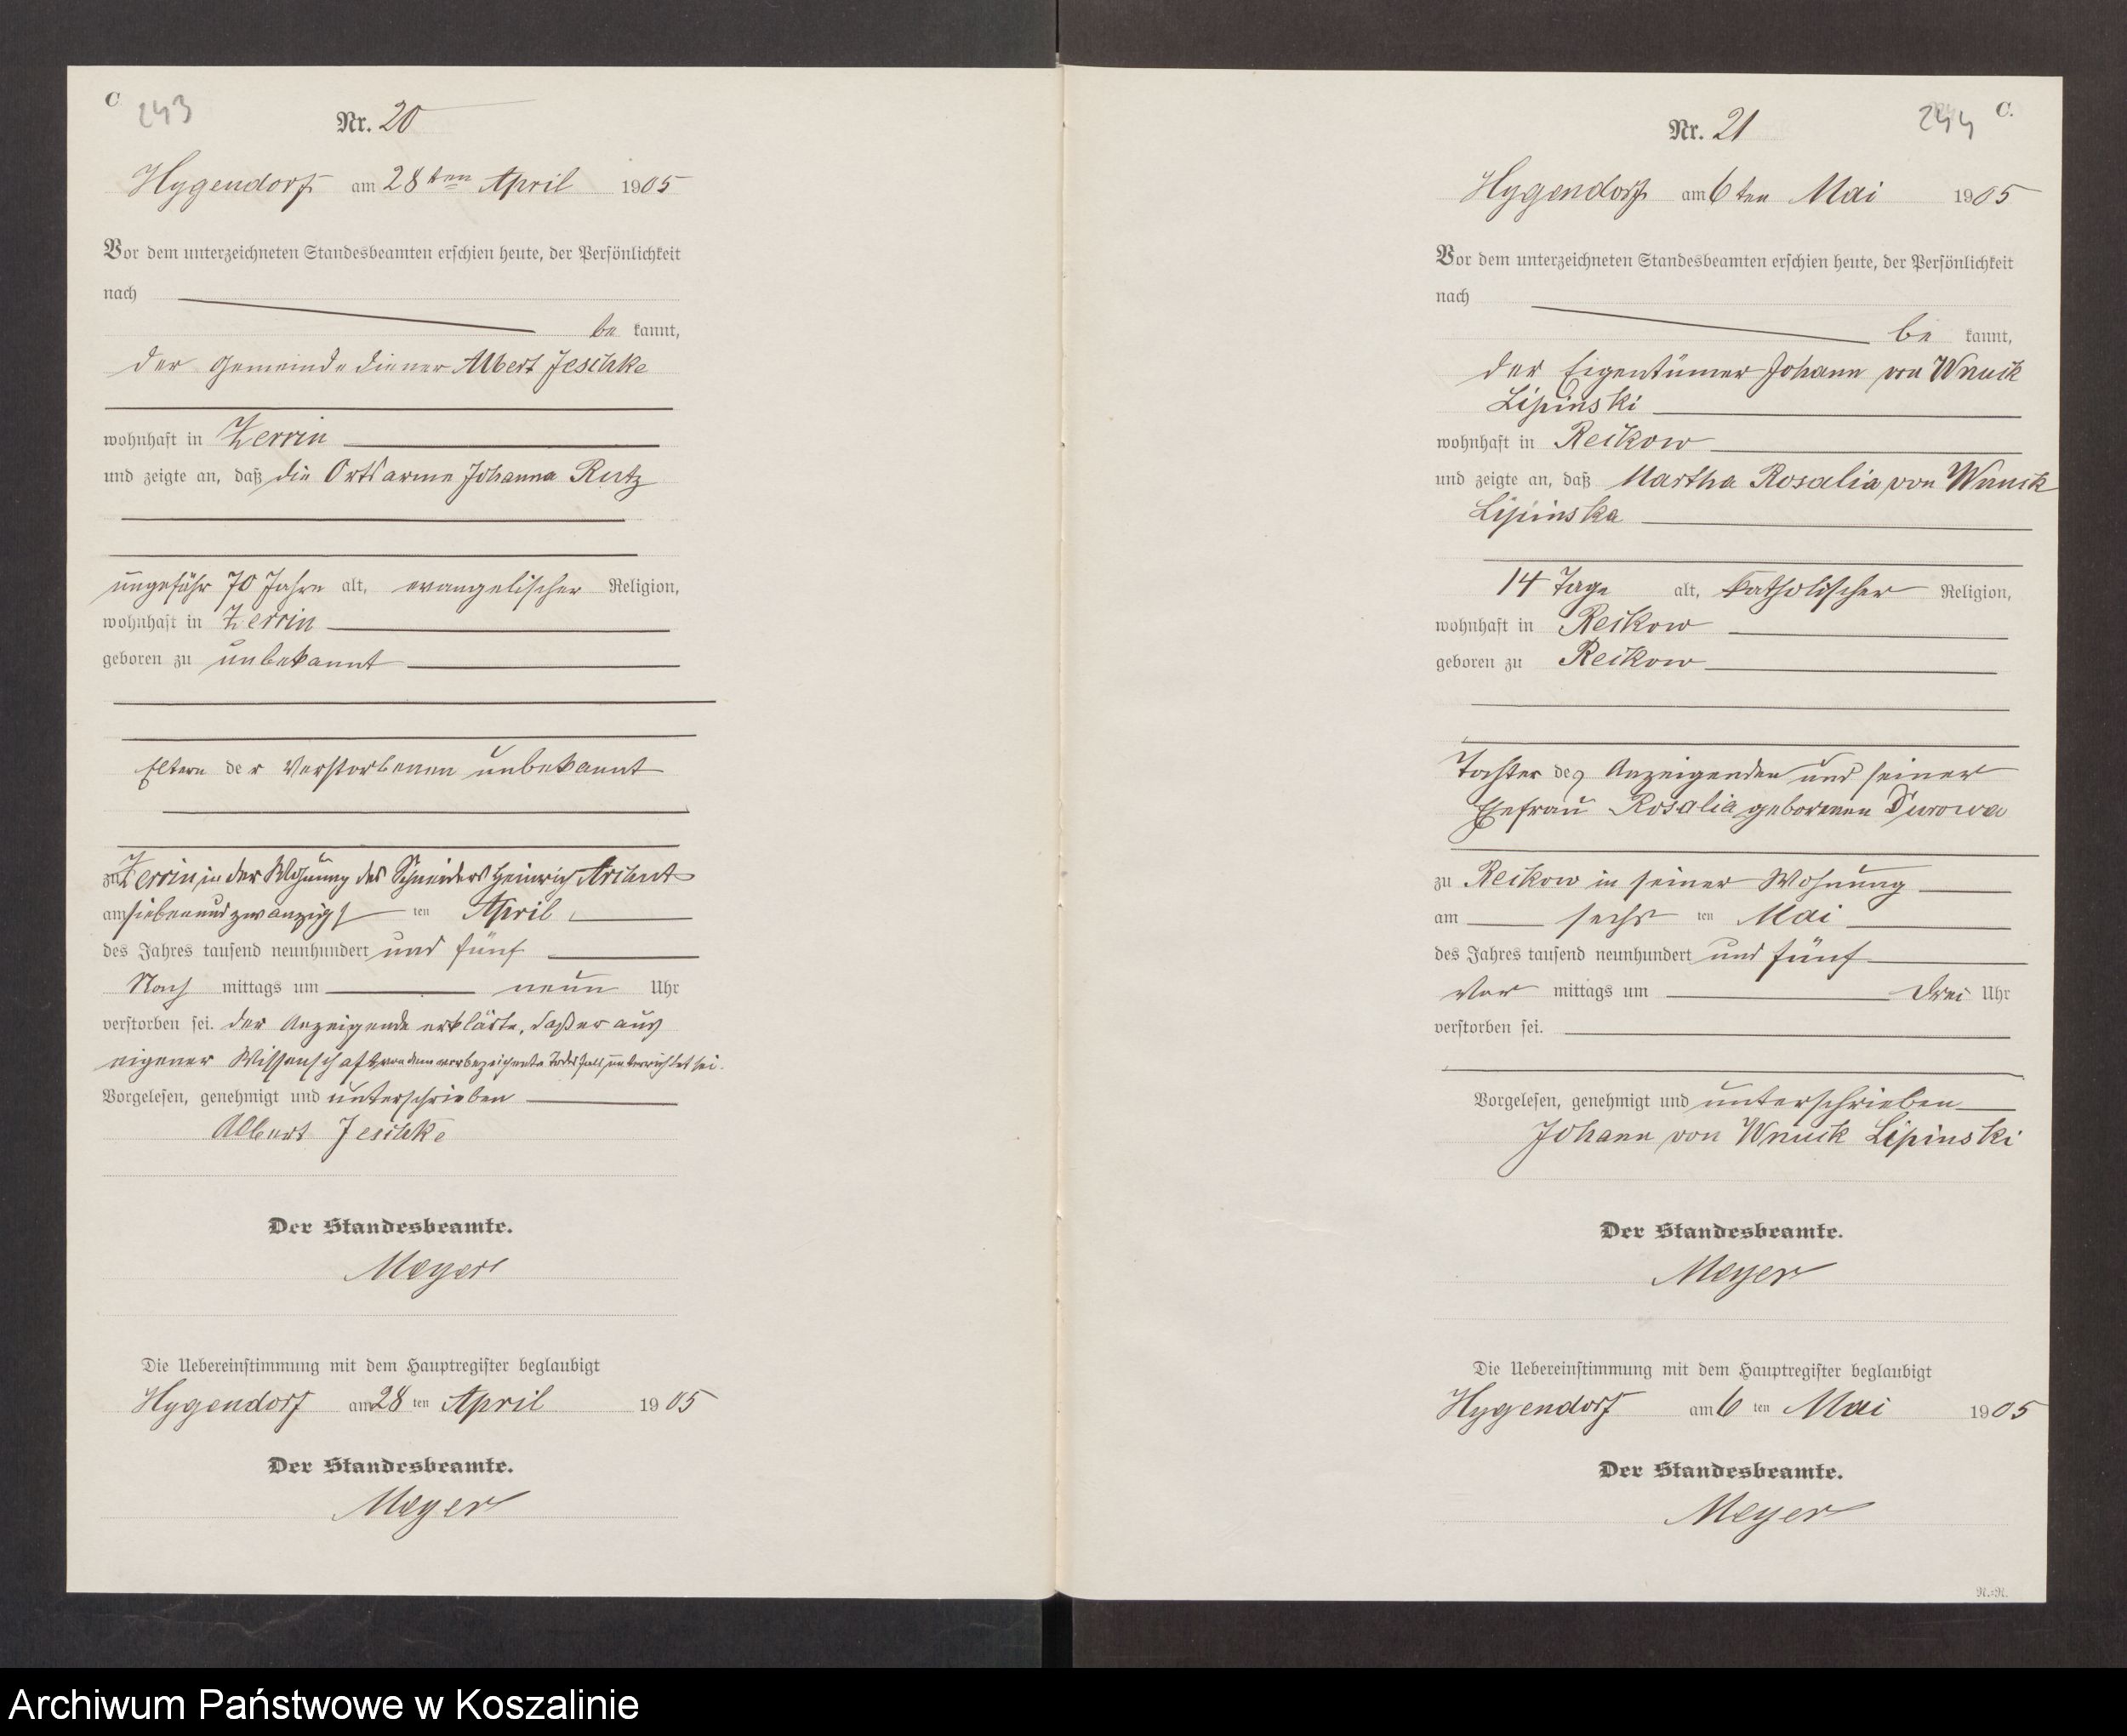 C
243
Nr. 20
Hygendorf am 28ten April 1905
Vor dem unterzeichneten Standesbeamten erschien heute, der Persönlichkeit
nach
be kannt,
der Gemeindediener Albert Jeschke
wohnhaft in Zerrin
und zeigte an, daß die Ortsarme Johanna Rutz
ungefähr 70 Jahre alt, evangelischer Religion,
wohnhaft in Zerrin
geboren zu unbekannt
Eltern der Verstorbenen unbekannt
zu Zerrin in der Wohnung des Schneiders Heinrich
am siebenundzwanzigsten April
des Jahres tausend neunhundert und fünf
Nach mittags um neun Uhr
verstorben sei. Der Anzeigende erklärte, daß er aus
eigener Wissenschaft von dem vorbezeichnete Todesfall unterrichtet sei.
Vorgelesen, genehmigt und unterschrieben
Albert Jeschke
Der Standesbeamte.
Meyer
Die Uebereinstimmung mit dem Hauptregister beglaubigt
Hygendorf am 28 ten April 1905
Der Standesbeamte.
Meyer
244
C.
Nr. 21
Hygendorf am 6ten Mai 1905
Vor dem unterzeichneten Standesbeamten erschien heute, der Persönlichkeit
nach
be kannt,
der Eigentümer Johann von Wnuck
Lipinski
wohnhaft in Reckow
und zeigte an, daß Martha Rosalia von Wnuck
Lipinska
14 Tage alt, katholischer Religion,
wohnhaft in Reckow
geboren zu Reckow
Tochter des Anzeigenden und seiner
Ehefrau Rosalia geborenen Durowa
zu Reckow in seiner Wohnung
am sechs ten Mai
des Jahres tausend neunhundert und fünf
Vor mittags um drei Uhr
verstorben sei.
Vorgelesen, genehmigt und unterschrieben
Johann von Wnuck Lipinski
Der Standesbeamte.
Meyer
Die Uebereinstimmung mit dem Hauptregister beglaubigt
Hygendorf am 6 ten Mai 1905
Der Standesbeamte.
Meyer
Archiwum Państwowe w Koszalinie